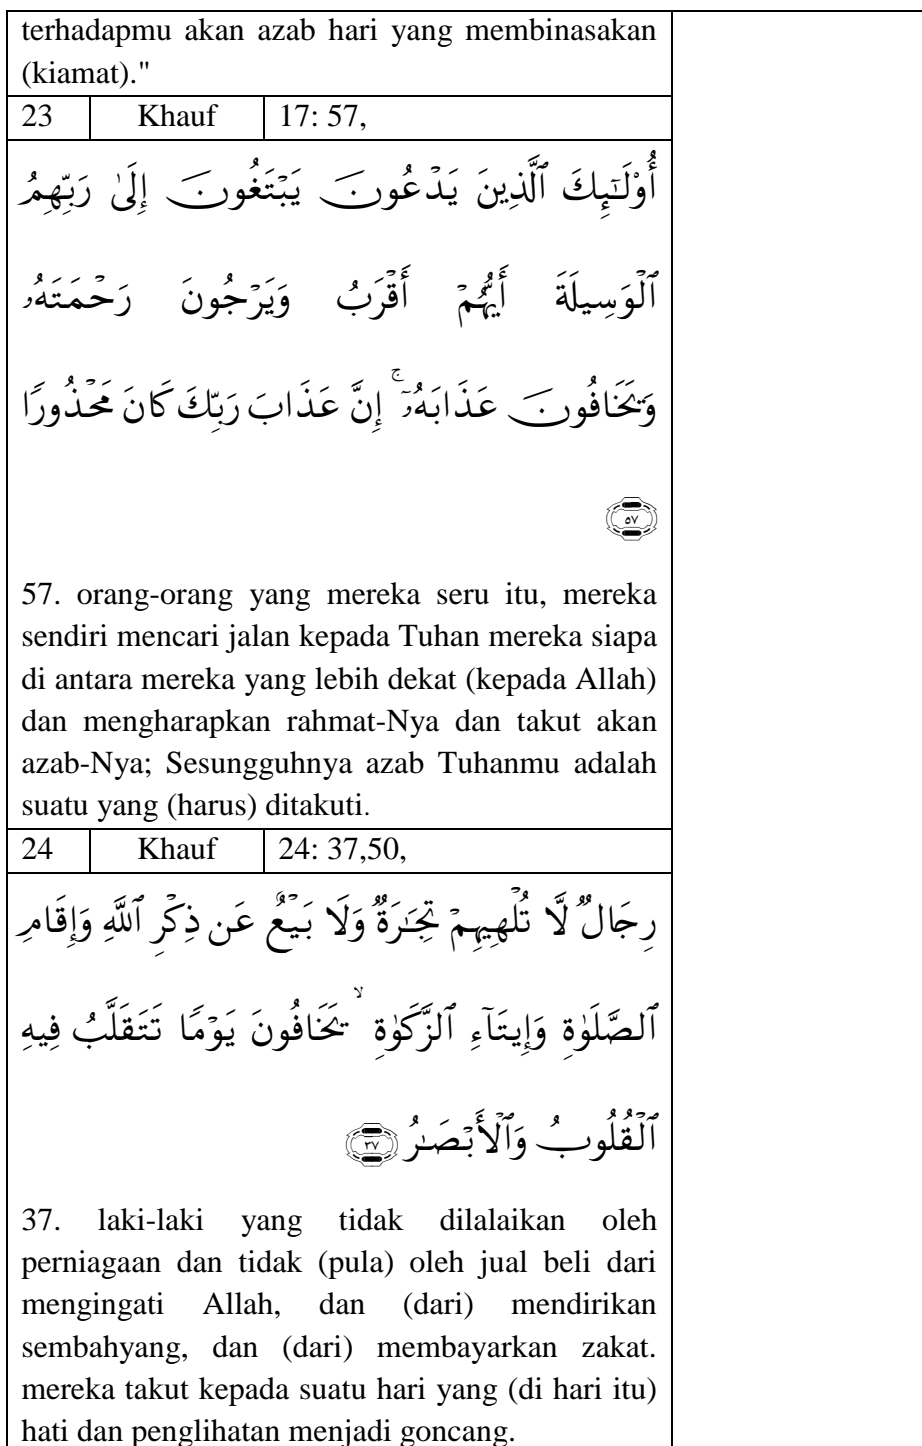 terhadapmu akan azab hari yang membinasakan
(kiamat)."
23 Khauf 17: 57,
أُوْلَٰٓئِكَ ٱلَّذِينَ يَدْعُونَ يَبْتَغُونَ إِلَىٰ رَبِّهِمُ
ٱلْوَسِيلَةَ أَيُّهُمْ أَقْرَبُ وَيَرْجُونَ رَحْمَتَهُۥ
وَيَخَافُونَ عَذَابَهُۥٓ ۚ إِنَّ عَذَابَ رَبِّكَ كَانَ مَحْذُورًا
٥٧
57. orang-orang yang mereka seru itu, mereka
sendiri mencari jalan kepada Tuhan mereka siapa
di antara mereka yang lebih dekat (kepada Allah)
dan mengharapkan rahmat-Nya dan takut akan
azab-Nya; Sesungguhnya azab Tuhanmu adalah
suatu yang (harus) ditakuti.
24 Khauf 24: 37,50,
رِجَالٌ لَّا تُلْهِيهِمْ تِجَٰرَةٌ وَلَا بَيْعٌ عَن ذِكْرِ ٱللَّهِ وَإِقَامِ
ٱلصَّلَوٰةِ وَإِيتَآءِ ٱلزَّكَوٰةِ ۙ يَخَافُونَ يَوْمًا تَتَقَلَّبُ فِيهِ
ٱلْقُلُوبُ وَٱلْأَبْصَٰرُ ٣٧
37. laki-laki yang tidak dilalaikan oleh
perniagaan dan tidak (pula) oleh jual beli dari
mengingati Allah, dan (dari) mendirikan
sembahyang, dan (dari) membayarkan zakat.
mereka takut kepada suatu hari yang (di hari itu)
hati dan penglihatan menjadi goncang.